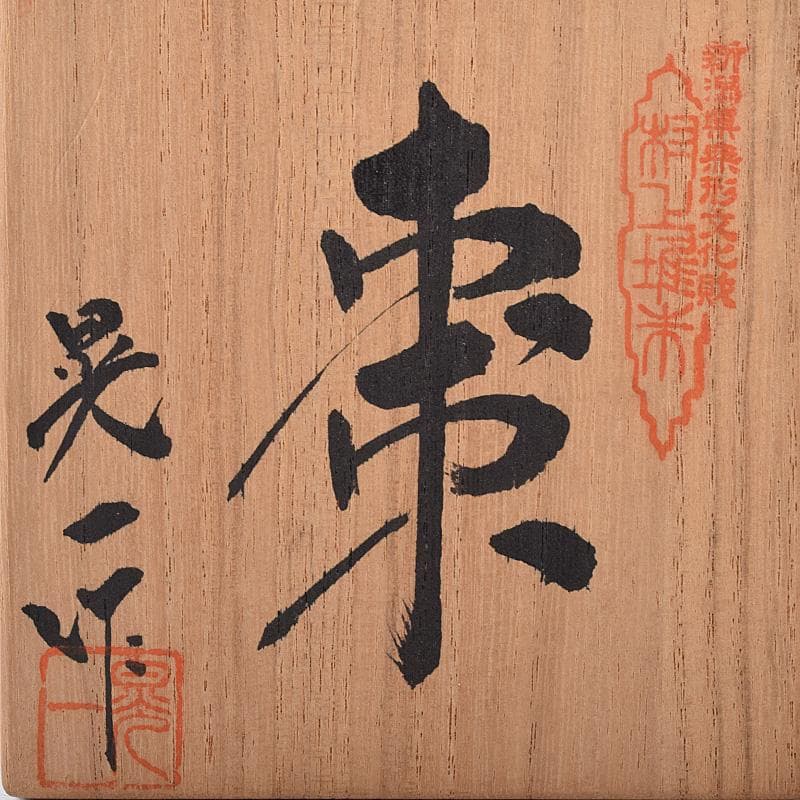 新潟県無形文化財
村上堆朱
棗
晃一作
晃一